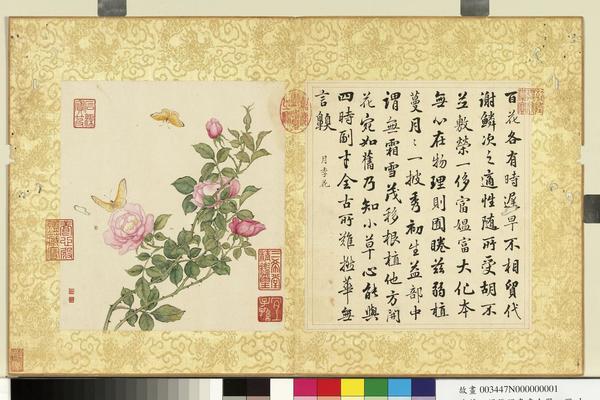 百花各有時遲早不相貿代
謝鱗次之適性隨所受胡不
敷榮一侈富媼富大化本
無心在物理則固睠茲弱植
蔓月〻一披秀初生益部中
謂無霜雪茂移根植他方開
花宛如舊乃知小草心能與
四時副才全古所難華無
言
月季花
故畫 003447N000000001